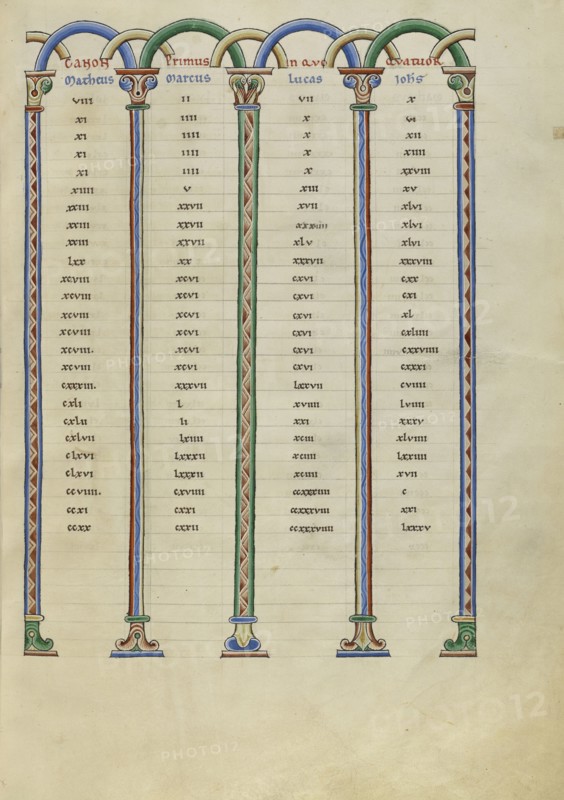 CANON PRIMUS IN QUO QUATUOR
Matheus Marcus Lucas Johs
viii ii vii x
xi iiii x vi
xi iiii x xii
xi iiii x xiiii
xi iiii x xxviii
xiiii v xiii xv
xxiii xxvii xvii xlvi
xxiii xxvii xxxiiii xlvi
xxiii xxvii xlv xlvi
lxx xx xxxvii xxxviii
xcviii xcvi cxvi cxx
xcviii xcvi cxvi cxi
xcviii xcvi cxvi xl
xcviii xcvi cxvi cxliiii
xcviii. xcvi cxvi cxxviiii
xcviii xcvi cxvi cxxxi
cxxxiii. xxxvii lxxvii cviiii
cxli l xviiii lviiii
cxlii li xxi xxxv
cxlvii lxiiii xciii xlviiii
clxvi lxxxii xciiii lxxiiii
clxvi lxxxii xciiii xvii
ccviiii. cxviiii ccxxxiiii c
ccxi cxxi ccxxxviii xxi
ccxx cxxii ccxxxviiii lxxxv
PHOTO12